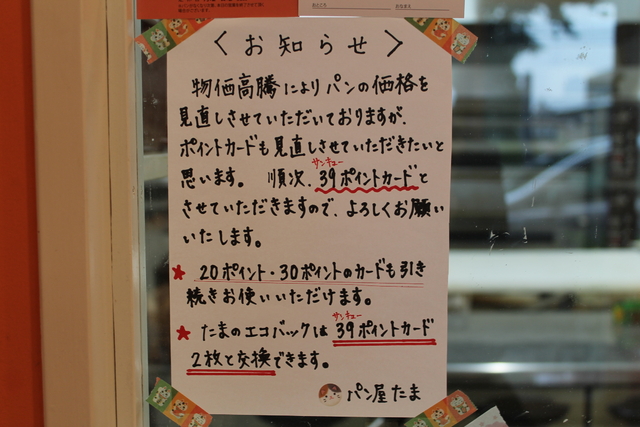 〈お知らせ〉
物価高騰によりパンの価格を
見直しさせていただいておりますが、
ポイントカードも見直しさせていただきたいと
サンキュー
思います。 順次、39ポイントカードと
させていただきますので、よろしくお願い
いたします。
★ 20ポイント・30ポイントのカードも引き
続きお使いいただけます。
サンキュー
★ たまのエコバックは39ポイントカード
2枚と交換できます。
パン屋たま